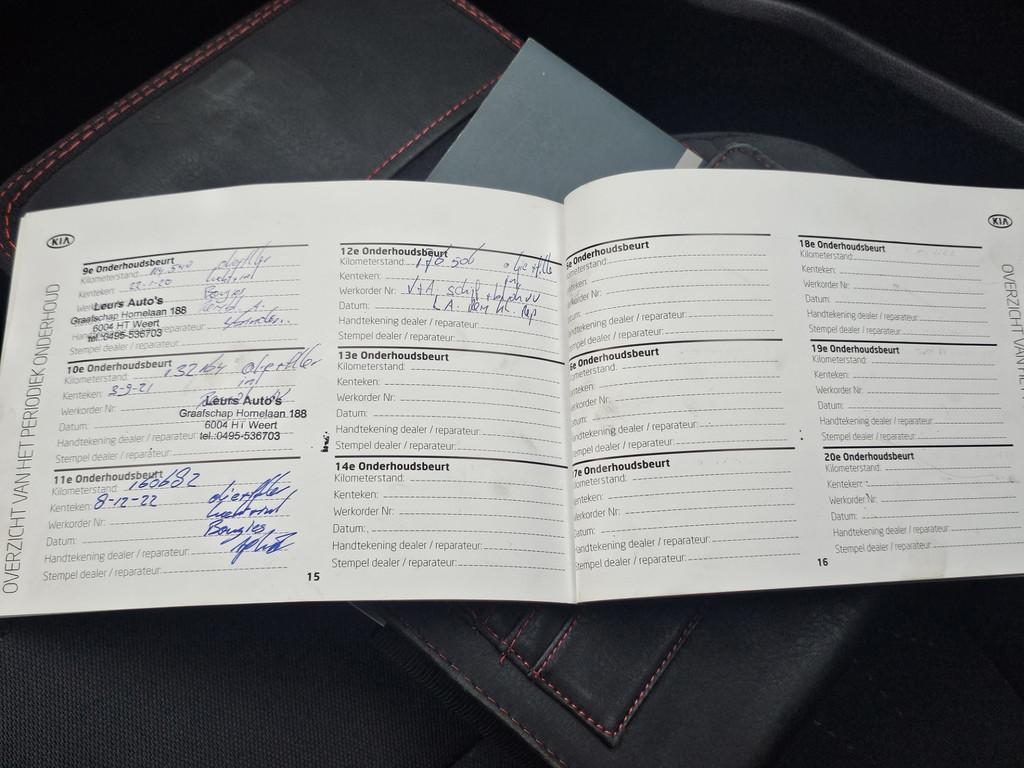 KIA
OVERZICHT VAN HET PERIODIEK ONDERHOUD
9e Onderhoudsbeurt
Kilometerstand:
Kenteken: 22-1-20
Bougies
Leurs Auto's
Graafschap Hornelaan 188
6004 HT Weert
tel.:0495-536703
Stempel dealer / reparateur:
10e Onderhoudsbeurt
Kilometerstand: 132164 olie+filter
Kenteken: 3-9-21 int
Werkorder Nr:
Leurs Auto's
Graafschap Hornelaan 188
6004 HT Weert
tel.:0495-536703
Datum:
Handtekening dealer / reparateur:
Stempel dealer / reparateur:
11e Onderhoudsbeurt
Kilometerstand: 160682
Kenteken: 8-12-22 olie+filter
Werkorder Nr: luchtint
Datum: Bougies
Handtekening dealer / reparateur:
Stempel dealer / reparateur:
15
12e Onderhoudsbeurt
Kilometerstand: 176.506 olie+filter
Kenteken: int
Werkorder Nr: V+A schijf
Datum:
Handtekening dealer / reparateur:
Stempel dealer / reparateur:
13e Onderhoudsbeurt
Kilometerstand:
Kenteken:
Werkorder Nr:
Datum:
Handtekening dealer / reparateur:
Stempel dealer / reparateur:
14e Onderhoudsbeurt
Kilometerstand:
Kenteken:
Werkorder Nr:
Datum:
Handtekening dealer / reparateur:
Stempel dealer / reparateur:
5e Onderhoudsbeurt
ilometerstand:
enteken:
erkorder Nr:
atum:
andtekening dealer / reparateur:
tempel dealer / reparateur:
6e Onderhoudsbeurt
ilometerstand:
enteken:
erkorder Nr:
atum:
andtekening dealer / reparateur:
tempel dealer / reparateur:
7e Onderhoudsbeurt
ilometerstand:
enteken:
erkorder Nr:
atum:
andtekening dealer / reparateur:
tempel dealer / reparateur:
16
KIA
18e Onderhoudsbeurt
Kilometerstand:
Kenteken:
Werkorder Nr:
Datum:
Handtekening dealer / reparateur:
Stempel dealer / reparateur:
19e Onderhoudsbeurt
Kilometerstand:
Kenteken:
Werkorder Nr:
Datum:
Handtekening dealer / reparateur:
Stempel dealer / reparateur:
20e Onderhoudsbeurt
Kilometerstand:
Kenteken:
Werkorder Nr:
Datum:
Handtekening dealer / reparateur:
Stempel dealer / reparateur:
OVERZICHT VAN HET